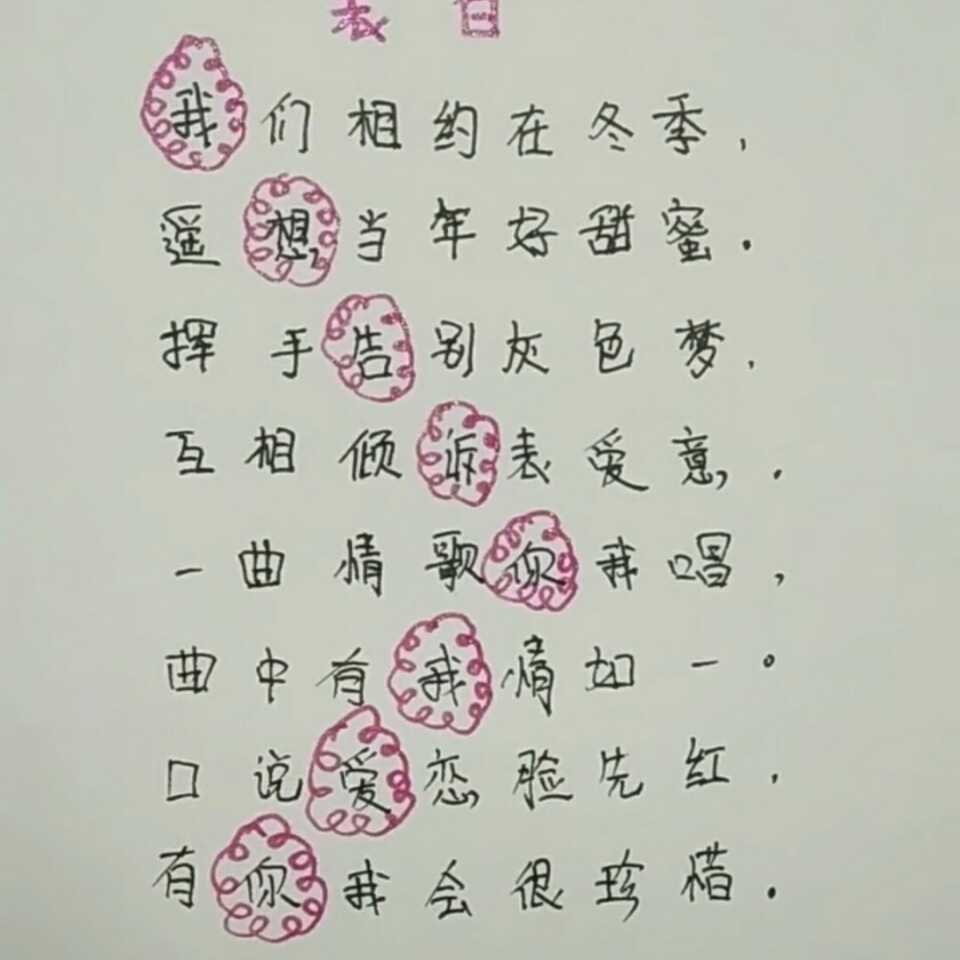 表白
我们相约在冬季，
遥想当年好甜蜜.
挥手告别灰色梦，
互相倾诉表爱意.
一曲情歌你我唱，
曲中有我情如一。
口说爱恋脸先红，
有你我会很珍惜.